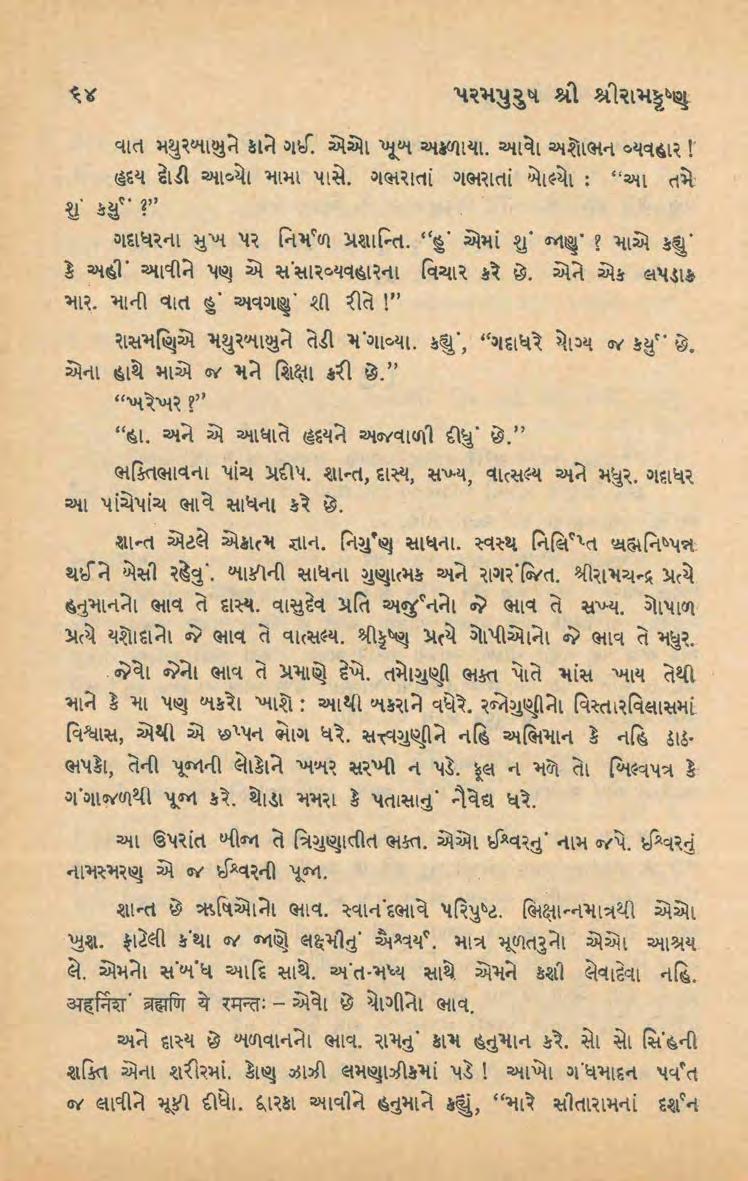 ૬૪ પરમપુરુષ શ્રી શ્રીરામકૃષ્ણ
વાત મથુરબાબુને કાને ગઈ. એઓ ખૂબ અકળાયા. આવો અશોભન વ્યવહાર !
હૃદય દોડી આવ્યો મામા પાસે. ગભરાતાં ગભરાતાં બોલ્યો : “આ તમે
શું કર્યું ?”
ગદાધરના મુખ પર નિર્મળ પ્રશાન્તિ. “હું એમાં શું જાણું ? માએ કહ્યું
કે અહીં આવીને પણ એ સંસારવ્યવહારના વિચાર કરે છે. એને એક લપડાક
માર. માની વાત હું અવગણું શી રીતે !”
રાસમણિએ મથુરબાબુને તેડી મંગાવ્યા. કહ્યું, “ગદાધરે યોગ્ય જ કર્યું છે.
એના હાથે માએ જ મને શિક્ષા કરી છે.”
“ખરેખર ?”
“હા. અને એ આઘાતે હૃદયને અજવાળી દીધું છે.”
ભક્તિભાવના પાંચ પ્રદીપ. શાન્ત, દાસ્ય, સખ્ય, વાત્સલ્ય અને મધુર. ગદાધર
આ પાંચેપાંચ ભાવે સાધના કરે છે.
શાન્ત એટલે એકાત્મ જ્ઞાન. નિર્ગુણ સાધના. સ્વસ્થ નિર્લિપ્ત બ્રહ્મનિષ્પન્ન
થઈને બેસી રહેવું. બાકીની સાધના ગુણાત્મક અને રાગરંજિત. શ્રીરામચન્દ્ર પ્રત્યે
હનુમાનનો ભાવ તે દાસ્ય. વાસુદેવ પ્રતિ અર્જુનનો જે ભાવ તે સખ્ય. ગોપાળ
પ્રત્યે યશોદાનો જે ભાવ તે વાત્સલ્ય. શ્રીકૃષ્ણ પ્રત્યે ગોપીઓનો જે ભાવ તે મધુર.
જેવો જેનો ભાવ તે પ્રમાણે દેખે. તમોગુણી ભક્ત પોતે માંસ ખાય તેથી
માને કે મા પણ બકરો ખાશે : આથી બકરાને વધેરે. રજોગુણીનો વિસ્તારવિલાસમાં
વિશ્વાસ, એથી એ છપ્પન ભોગ ધરે. સત્ત્વગુણીને નહિ અભિમાન કે નહિ ઠાઠ-
ભપકો, તેની પૂજાની લોકોને ખબર સરખી ન પડે. ફૂલ ન મળે તો બિલ્વપત્ર કે
ગંગાજળથી પૂજા કરે. થોડા મમરા કે પતાસાનું નૈવેદ્ય ધરે.
આ ઉપરાંત બીજા તે ત્રિગુણાતીત ભક્ત. એઓ ઈશ્વરનું નામ જપે. ઈશ્વરનું
નામસ્મરણ એ જ ઈશ્વરની પૂજા.
શાન્ત છે ઋષિઓનો ભાવ. સ્વાનંદભાવે પરિપુષ્ટ. ભિક્ષાન્નમાત્રથી એઓ
ખુશ. ફાટેલી કંથા જ જાણે લક્ષ્મીનું ઐશ્વર્ય. માત્ર મૂળતરુનો એઓ આશ્રય
લે. એમનો સંબંધ આદિ સાથે. અંત-મધ્ય સાથે એમને કશી લેવાદેવા નહિ.
अहर्निशं ब्रह्मणि ये रमन्तः – એવો છે યોગીનો ભાવ.
અને દાસ્ય છે બળવાનનો ભાવ. રામનું કામ હનુમાન કરે. સો સો સિંહની
શક્તિ એના શરીરમાં. કોણ ઝાઝી લમણાઝીકમાં પડે ! આખો ગંધમાદન પર્વત
જ લાવીને મૂકી દીધો. દ્વારકા આવીને હનુમાને કહ્યું, “મારે સીતારામનાં દર્શન